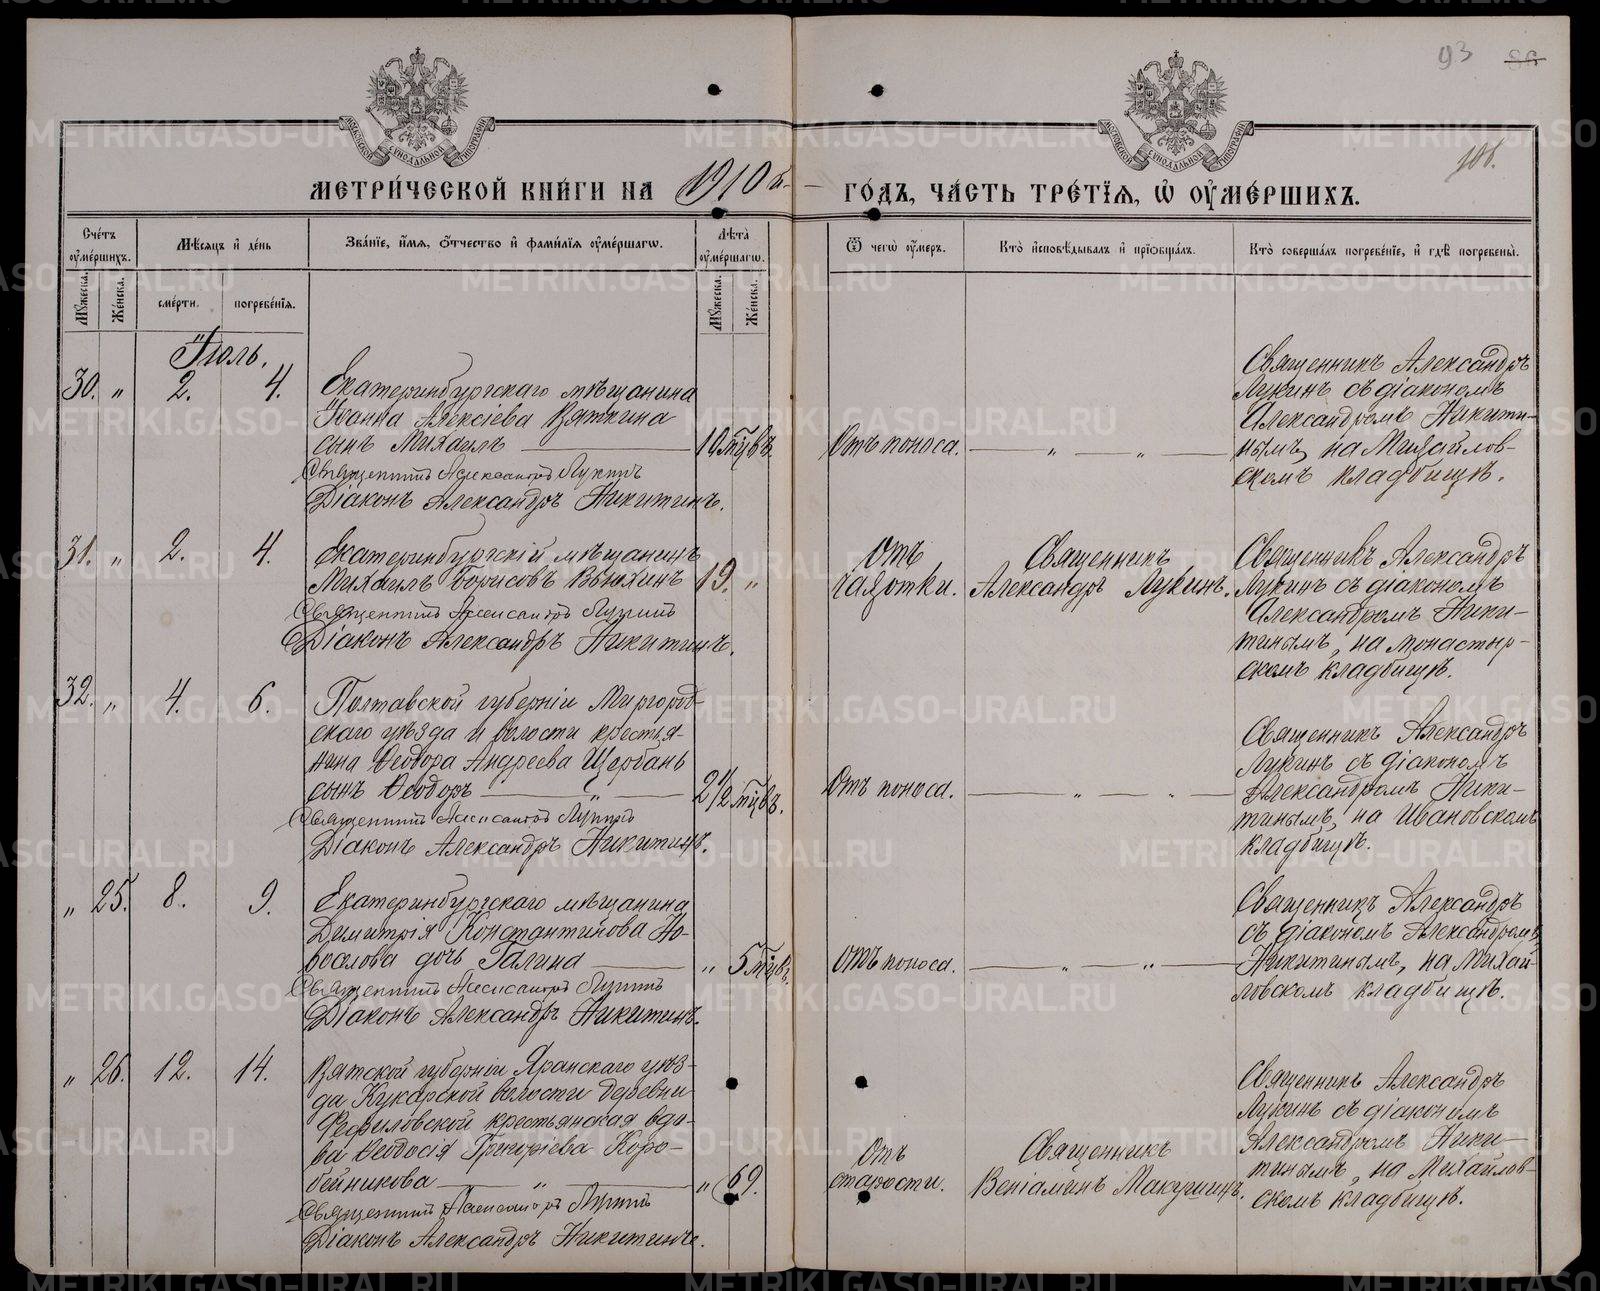 93
101.
МОСКОВСКОЙ СѴНОДАЛЬНОЙ ТИПОГРАФІИ
МОСКОВСКОЙ СѴНОДАЛЬНОЙ ТИПОГРАФІИ
МЕТРИ́ЧЕСКОЙ КНИ́ГИ НА 1910 й ГО́ДЪ, ЧА́СТЬ ТРЕ́ТЇѦ, Ѽ ОУ҆МЕ́РШИХЪ.
Сче́тъ оу҆ме́ршихъ.
Мѣ́сѧцъ и҆ де́нь
Зва́нїе, и҆́мѧ, ѻ҆́тчество и҆ фами́лїѧ оу҆ме́ршагѡ.
Лѣ́та оу҆ме́ршагѡ.
Ѿ чегѡ̀ оу҆́меръ.
Кто̀ и҆сповѣ́дывалъ и҆ прїѡбща́лъ.
Кто̀ соверша́лъ погребе́нїе, и҆ гдѣ̀ погребены̀.
Мꙋ́жеска.
Же́нска.
сме́рти.
погребе́нїѧ.
Мꙋ́жеска.
Же́нска.
Іюль.
30. „ 2. 4.
Екатеринбургскаго мѣщанина
Іоанна Алексіева Вяткина
сынъ Михаилъ
Священникъ Александръ Лукинъ
Діаконъ Александръ Никитинъ.
10 мцвъ
Отъ поноса.
„ „
Священникъ Александръ
Лукинъ съ діакономъ
Александромъ Никити-
нымъ, на Михайлов-
скомъ кладбищѣ.
31. „ 2. 4.
Екатеринбургскій мѣщанинъ
Михаилъ Борисовъ Вьюхинъ
Священникъ Александръ Лукинъ
Діаконъ Александръ Никитинъ.
19. „
Отъ
чахотки.
Священникъ
Александръ Лукинъ.
Священникъ Александръ
Лукинъ съ діакономъ
Александромъ Ники-
тинымъ, на монастыр-
скомъ кладбищѣ.
32. „ 4. 6.
Полтавской губерніи Миргород-
скаго уѣзда и волости крестья-
нина Ѳеодора Андреева Щербань
сынъ Ѳеодоръ „
Священникъ Александръ Лукинъ
Діаконъ Александръ Никитинъ.
2 1/2 мцвъ.
Отъ поноса.
„ „
Священникъ Александръ
Лукинъ съ діакономъ
Александромъ Ники-
тинымъ, на Ивановскомъ
кладбищѣ.
„ 25. 8. 9.
Екатеринбургскаго мѣщанина
Димитрія Константинова Но-
воалова дочь Галина
Священникъ Александръ Лукинъ
Діаконъ Александръ Никитинъ.
„ 5 мцвъ.
Отъ поноса.
„ „
Священникъ Александръ
съ діакономъ Александромъ
Никитинымъ, на Михай-
ловскомъ кладбищѣ.
„ 26. 12. 14.
Вятской губерніи Яранскаго уѣз-
да Кукарской волости деревни
крестьянская вдо-
ва Ѳеодосія Григоріева Коро-
бейникова „
Священникъ Александръ Лукинъ
Діаконъ Александръ Никитинъ.
„ 69.
Отъ
старости.
Священникъ
Веніаминъ Макушинъ.
Священникъ Александръ
Лукинъ съ діакономъ
Александромъ Ники-
тинымъ, на Михайлов-
скомъ кладбищѣ.
METRIKI.GASO-URAL.RU